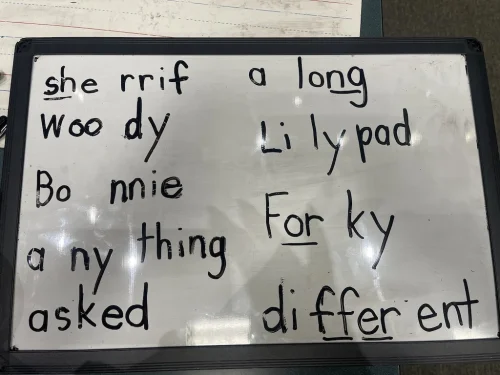 she rrif
Woo dy
Bo nnie
a ny thing
asked
a long
Li ly pad
For ky
di ffer ent